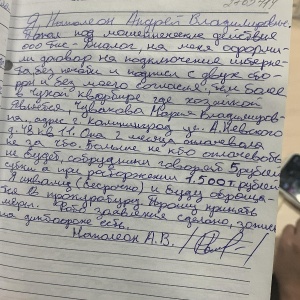 Я Наполеон Андрей Владимирович.
Попал под мошеннические действия
ООО тис-Диалог, на меня оформи-
ли договор на подключение интерне-
та, без печати и подписи с двух сто-
рон и без моего согласия, тем более
в чужой квартире где хозяйкой
является Чувакова Мария Владимиров-
на, адрес г. Калининград ул. А.Невского
д.48 кв 11. Она 2 месяца оплачивала
не за что. Больше не кто оплачивать
не будет, сотрудники говорят 5 рублей
цена а при расторжении 1.500 т.рублей
Я инвалид (бессрочно) и буду обраща-
ться в прокуратуру. Прошу принять
меры. Фото заявление сделано, запись
на диктофоне есть.
Наполеон А.В.